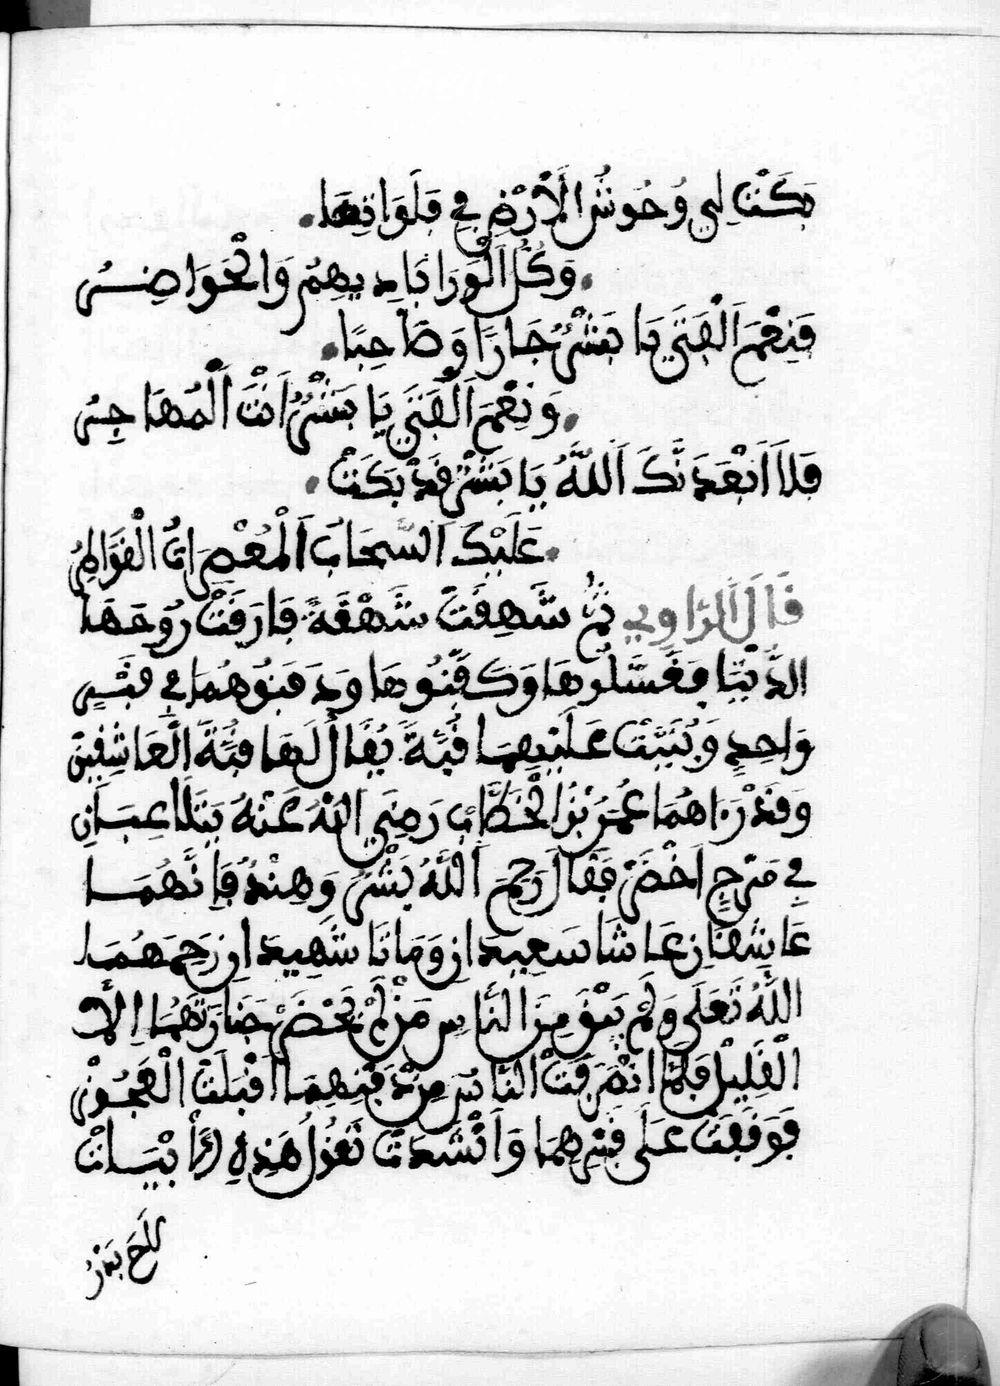 بَكَتْ لِي وُحُوشُ الْأَرْضِ فِي فَلَوَاتِهَا
وَكُلُّ الْوَرَا بَادِيهِمُ وَالْحَوَاضِرُ
فَنِعْمَ الْفَتَى يَا بِشْرُ جَارًا وَصَاحِبًا
وَنِعْمَ الْفَتَى يَا بِشْرُ أَنْتَ الْمُهَاجِرُ
فَلَا أَبْعَدَنَّكَ اللَّهُ يَا بِشْرُ قَدْ بَكَتْ
عَلَيْكَ السَّحَابُ الْمُعْصِرَاتُ
قَالَ الرَّاوِي ثُمَّ شَهِقَتْ شَهْقَةً فَارَقَتْ رُوحَهَا
الدُّنْيَا فَغَسَّلُوهَا وَكَفَّنُوهَا وَدَفَنُوهُمَا فِي قَبْرٍ
وَاحِدٍ وَبُنِيَتْ عَلَيْهِمَا قُبَّةً يُقَالُ لَهَا قُبَّةُ الْعَاشِقِينَ
وَقَدْ رَءَاهُمَا عُمَرُ بْنُ الْخَطَّابِ رَضِيَ اللَّهُ عَنْهُ يَتَلَاعِبَانِ
فِي مَرْجٍ أَخْضَرَ فَقَالَ رَحِمَ اللَّهُ بِشْرُ وَهِنْدُ فَإِنَّهُمَا
عَاشِقَانِ عَاشَا سَعِيدَانِ وَمَاتَا شَهِيدَانِ رَحِمَهُمَا
اللَّهُ تَعَلَى وَلَمْ يَبْقَ مِنَ النَّاسِ مَنْ لَمْ يَحْضَرْ جَنَازَتَهُمَا إِلَّا
الْقَلِيلُ فَلَمَّا انْصَرَفَتْ النَّاسُ مِنْ دَفْنِهِمَا أَقْبَلَتْ الْعَجُوزْ
فَوَقَفَتْ عَلَى قَبْرِهِمَا وَأَنْشَدَتْ تَقُولُ هَذِهِ الْأَبْيَاتْ